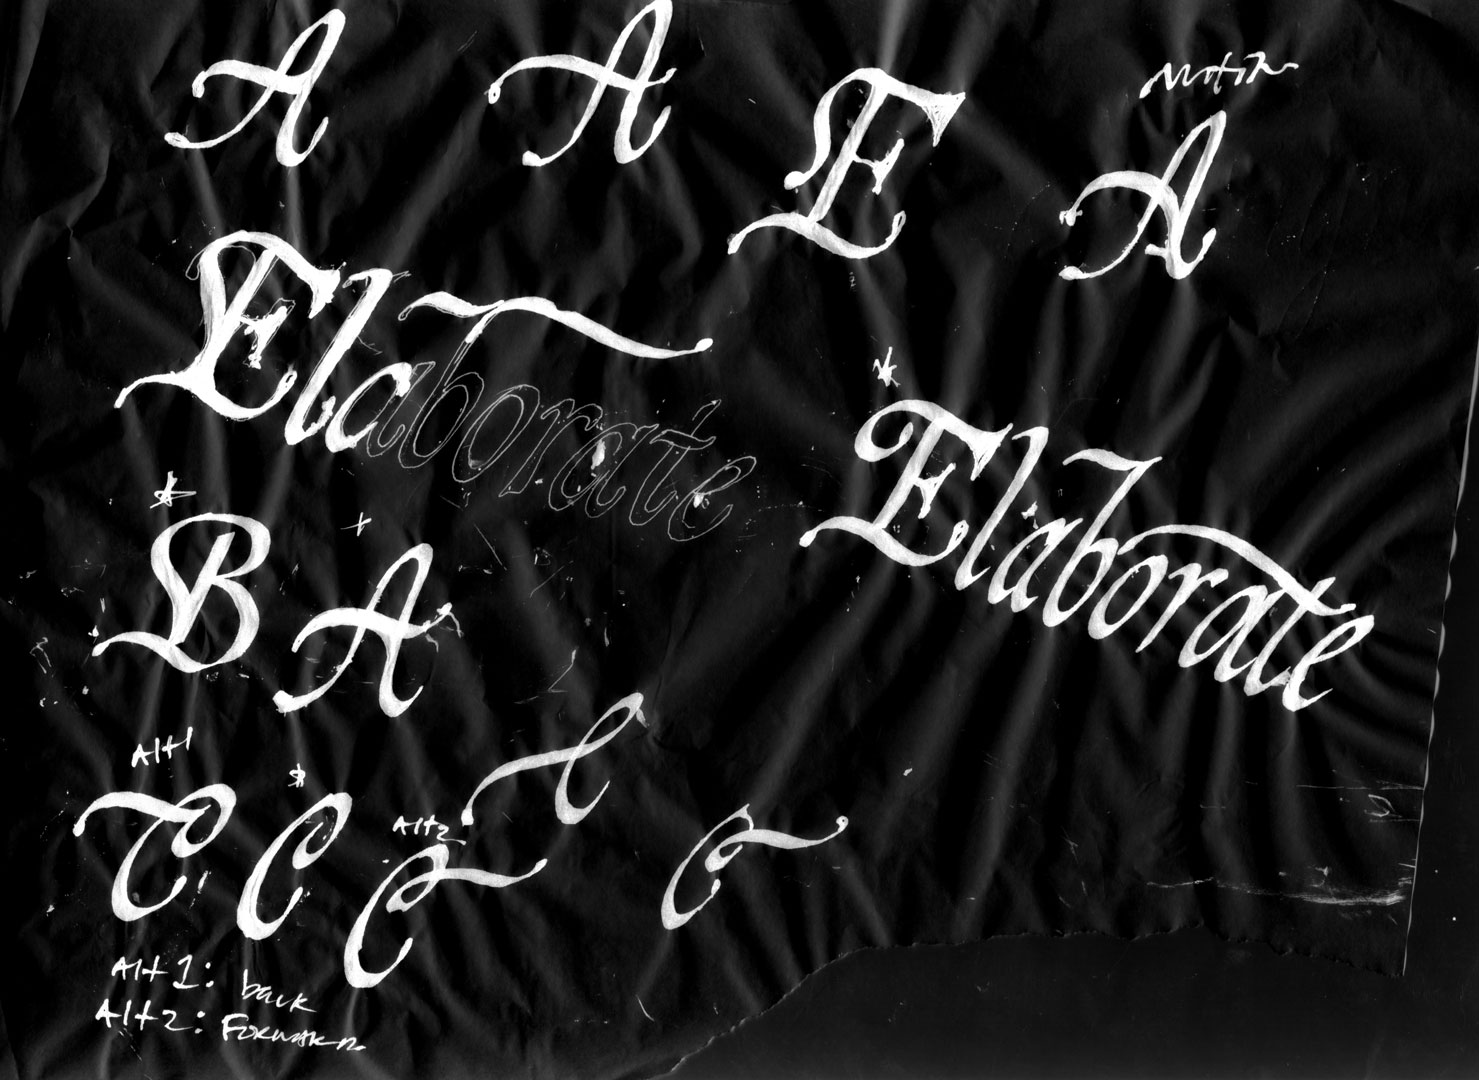 A A E
A
Elaborate
Elaborate
B A
Alt1
C C
Alt2
C C
Alt 1: back
Alt 2: Forward